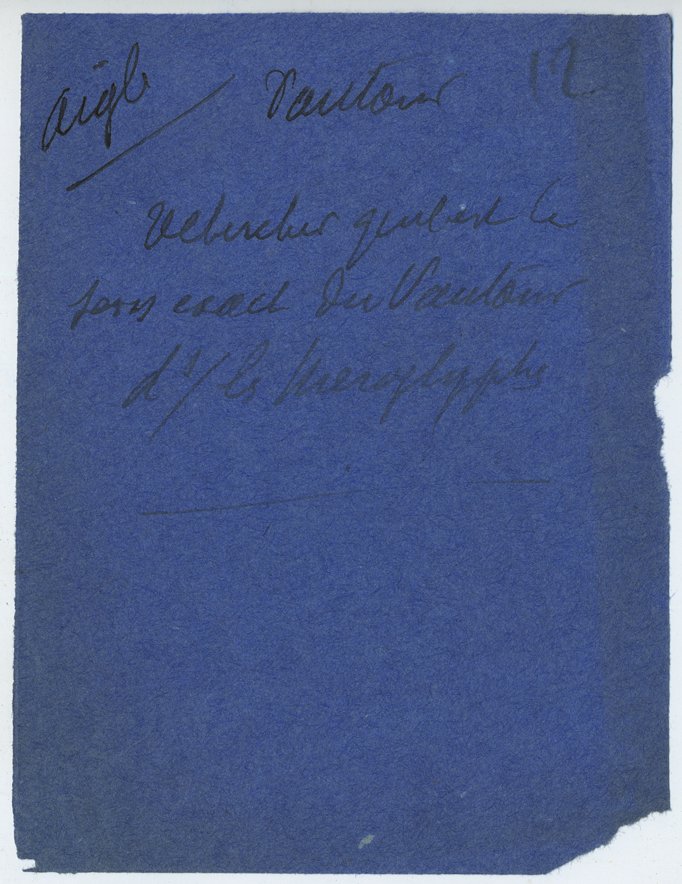 Aigle Vautour 12
Rechercher quel est le
sens exact du Vautour
ds/ les Hieroglyphes